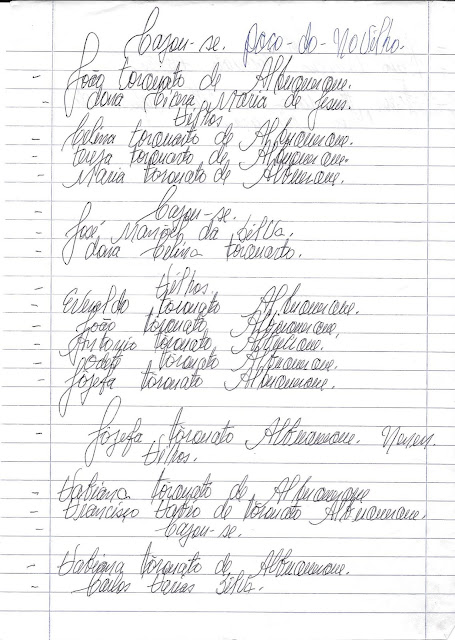 Cazou-se. Poço-do-Novilho.
João torquato de Albuquerque.
dona Maria de Jesus.
filhos
Celina torquato de Albuquerque.
tereza torquarto de Albuquerque.
Maria torquato de Albuquerque.
Cazou-se.
José Manoel da Silva.
dona Celina torquarto.
filhos
Erivaldo torquato Albuquerque.
João torquato, Albuquerque,
Antonio torquato, Albuquerque.
torquato Albuquerque.
Jósefa torquato Albuquerque.
Jósefa torquato Albuquerque.
filhos.
Fabiana torquato de Albuquerque
Francisco de torquato Albuquerque.
Cazou-se.
Fabiana torquato de Albuquerque.
Carlos Farias Silva.